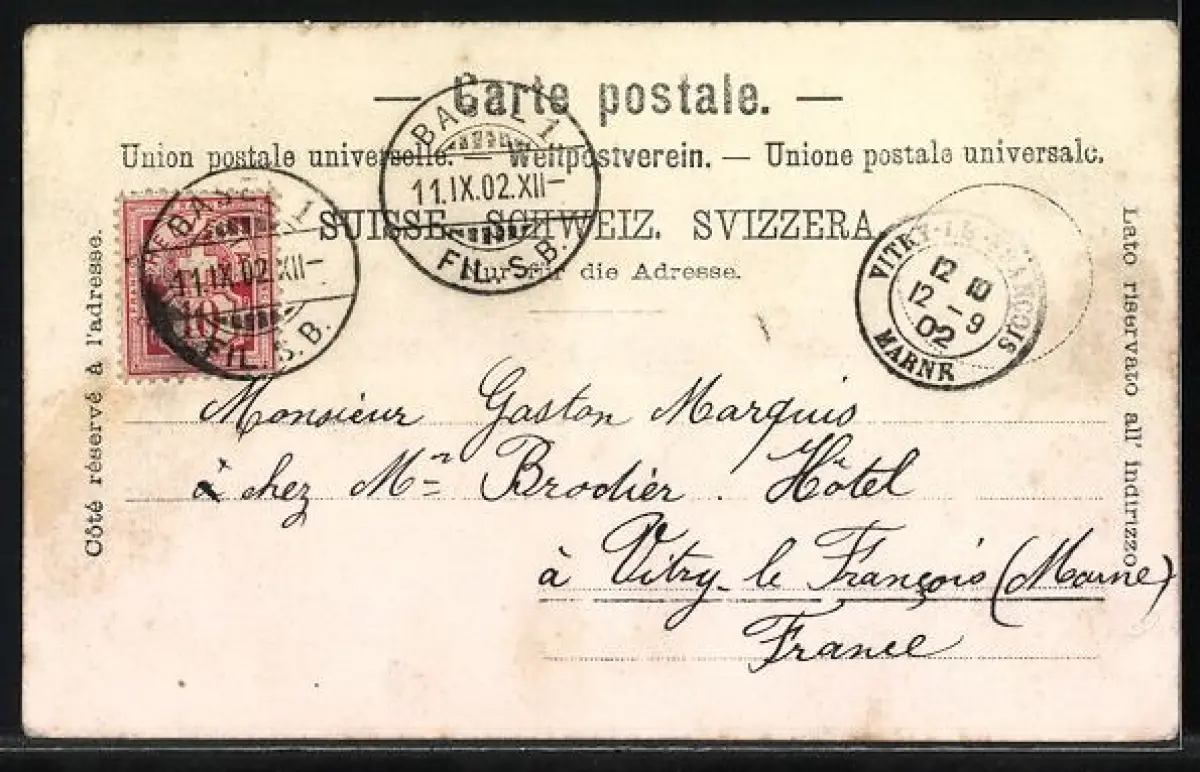 — Carte postale. —
Union postale universelle. — Weltpostverein. — Unione postale universale.
SUISSE. SCHWEIZ. SVIZZERA.
Nur für die Adresse.
Côté réservé à l'adresse.
Lato riservato all' indirizzo.
BASEL 1
11.IX.02.XII—
FIL. S. B.
BASEL 1
11.IX.02.XII—
FIL. S. B.
10
VITRY-LE-FRANÇOIS
12 10
12 - 9
02
MARNE
Monsieur Gaston Marquis
à chez Mr Brodier. Hôtel
à Vitry-le François (Marne)
France